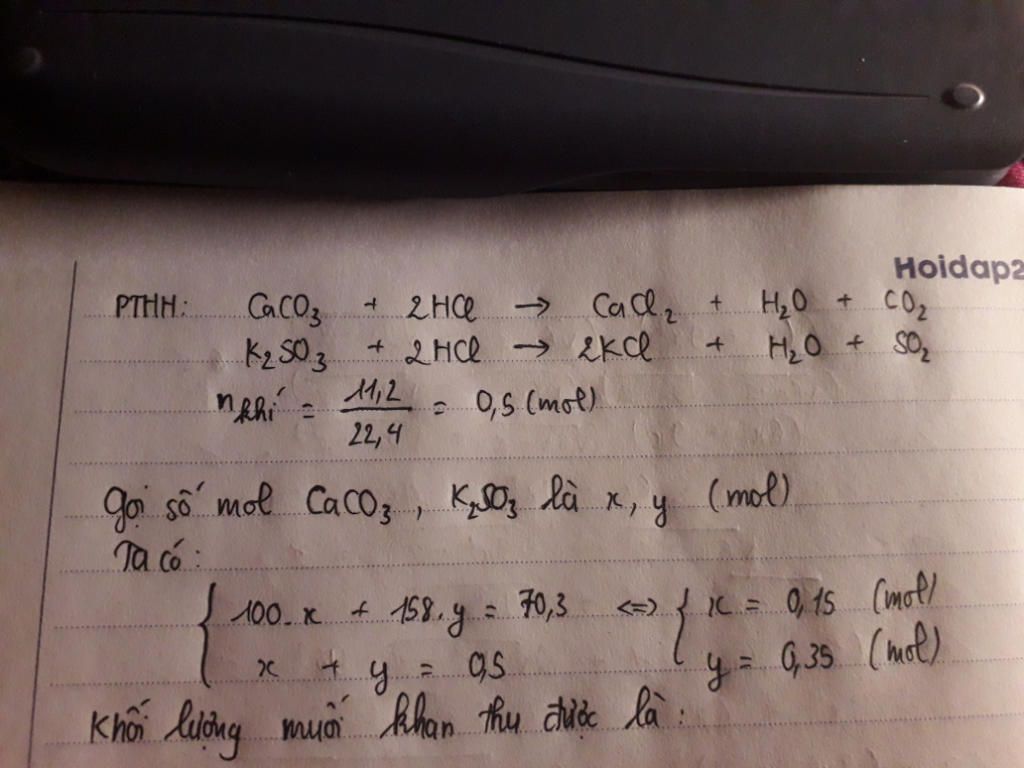 Hoidap2
PTHH: CaCO₃ + 2HCl → CaCl₂ + H₂O + CO₂
K₂SO₃ + 2HCl → 2KCl + H₂O + SO₂
n khí = 11,2 / 22,4 = 0,5 (mol)
Gọi số mol CaCO₃, K₂SO₃ là x, y (mol)
Ta có:
{ 100.x + 158.y = 70,3 <=> { x = 0,15 (mol)
x + y = 0,5 y = 0,35 (mol)
Khối lượng muối khan thu được là: